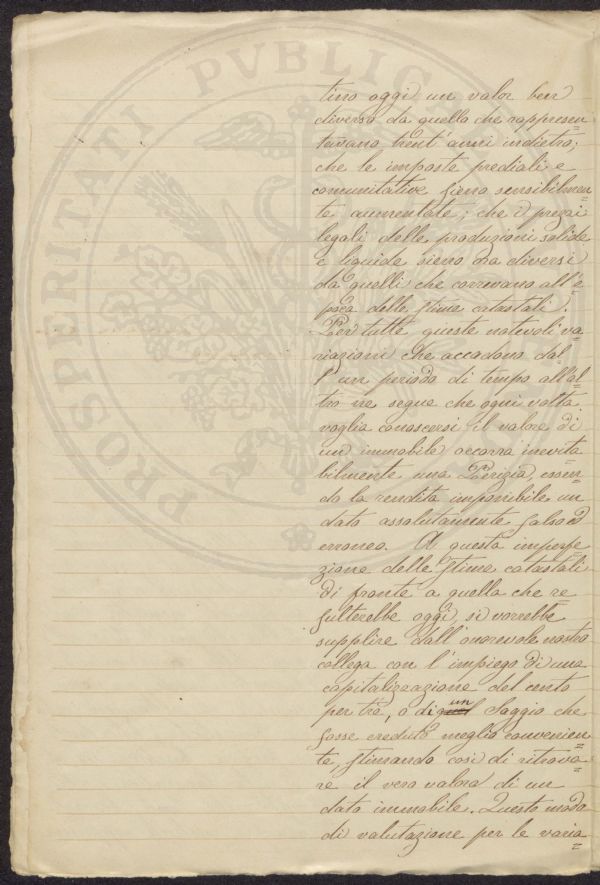 PROSPERITATI PVBLICAE
tino oggi un valor ben
diverso da quello che rappresen=
tavano trent'anni indietro;
che le imposte prediali e
comunitative sieno sensibilmen=
te aumentate; che i prezzi
legali delle produzioni solide
e liquide sieno ora diversi
da quelli che correvano all'e=
poca delle stime catastali.
Per tutte queste notevoli va=
riazioni che accadono dal=
l'un periodo di tempo all'al=
tro ne segue che ogni volta
voglia conoscersi il valore di
un immobile occorra inevita=
bilmente una Perizia, essen=
do la rendita imponibile un
dato assolutamente falso ed
erroneo. A questa imperfe=
zione delle stime catastali
di fronte a quella che re=
sulterebbe oggi, si vorrebbe
supplire dall'onorevole nostro
collega con l'impiego di una
capitalizzazione del cento
per tre, o di un Saggio che
fosse creduto meglio convenien=
te, stimando così di ritrova=
re il vero valore di un
dato immobile. Questo modo
di valutazione per le varia=